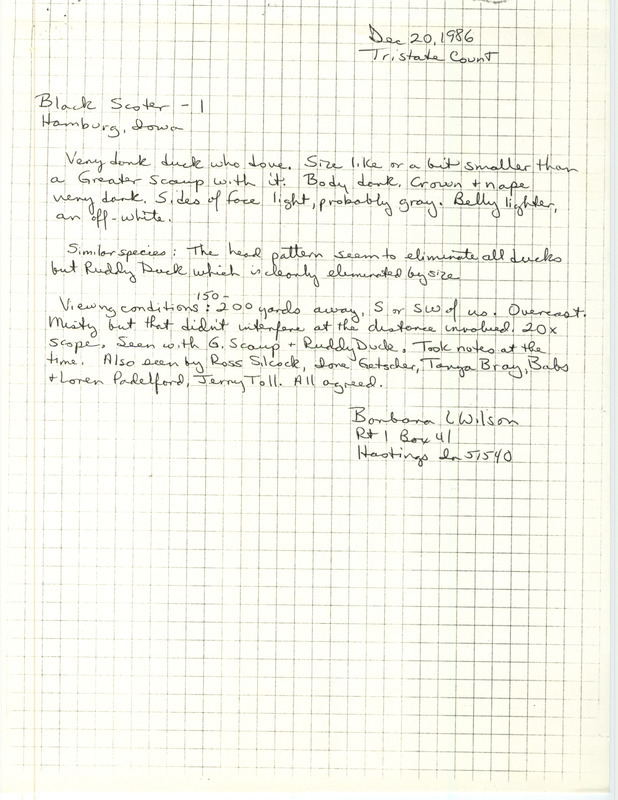 Dec 20, 1986
Tristate Count
Black Scoter - 1
Hamburg, Iowa
Very dark duck who dove. Size like or a bit smaller than
a Greater Scaup with it. Body dark. Crown + nape
very dark. Sides of face light, probably gray. Belly lighter,
an off-white.
Similar species: The head pattern seem to eliminate all ducks
but Ruddy Duck which is clearly eliminated by size
150-
Viewing conditions: 200 yards away, S or SW of us. Overcast.
Misty but that didn't interfere at the distance involved. 20x
scope. Seen with G. Scaup + Ruddy Duck. Took notes at the
time. Also seen by Ross Silcock, Ione Getscher, Tanya Bray, Babs
+ Loren Padelford, Jerry Toll. All agreed.
Barbara L Wilson
Rt 1 Box 41
Hastings Ia 51540